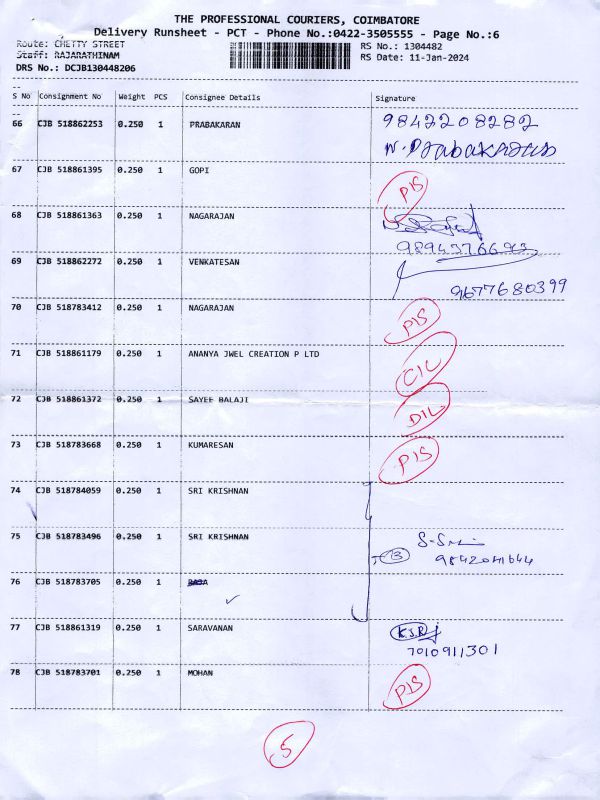 THE PROFESSIONAL COURIERS, COIMBATORE
Delivery Runsheet - PCT - Phone No.:0422-3505555 - Page No.:6
Route: CHETTY STREET
Staff: RAJARATHINAM
DRS No.: DCJB130448206
RS No.: 1304482
RS Date: 11-Jan-2024
S No Consignment No Weight PCS Consignee Details Signature
66 CJB 518862253 0.250 1 PRABAKARAN 9842208282
N. Prabakaran
67 CJB 518861395 0.250 1 GOPI PIS
68 CJB 518861363 0.250 1 NAGARAJAN
9894376693
69 CJB 518862272 0.250 1 VENKATESAN
9677680399
70 CJB 518783412 0.250 1 NAGARAJAN PIS
71 CJB 518861179 0.250 1 ANANYA JWEL CREATION P LTD CIL
72 CJB 518861372 0.250 1 SAYEE BALAJI DIL
73 CJB 518783668 0.250 1 KUMARESAN PIS
74 CJB 518784059 0.250 1 SRI KRISHNAN
75 CJB 518783496 0.250 1 SRI KRISHNAN
76 CJB 518783705 0.250 1
77 CJB 518861319 0.250 1 SARAVANAN
7010911301
78 CJB 518783701 0.250 1 MOHAN PIS
5